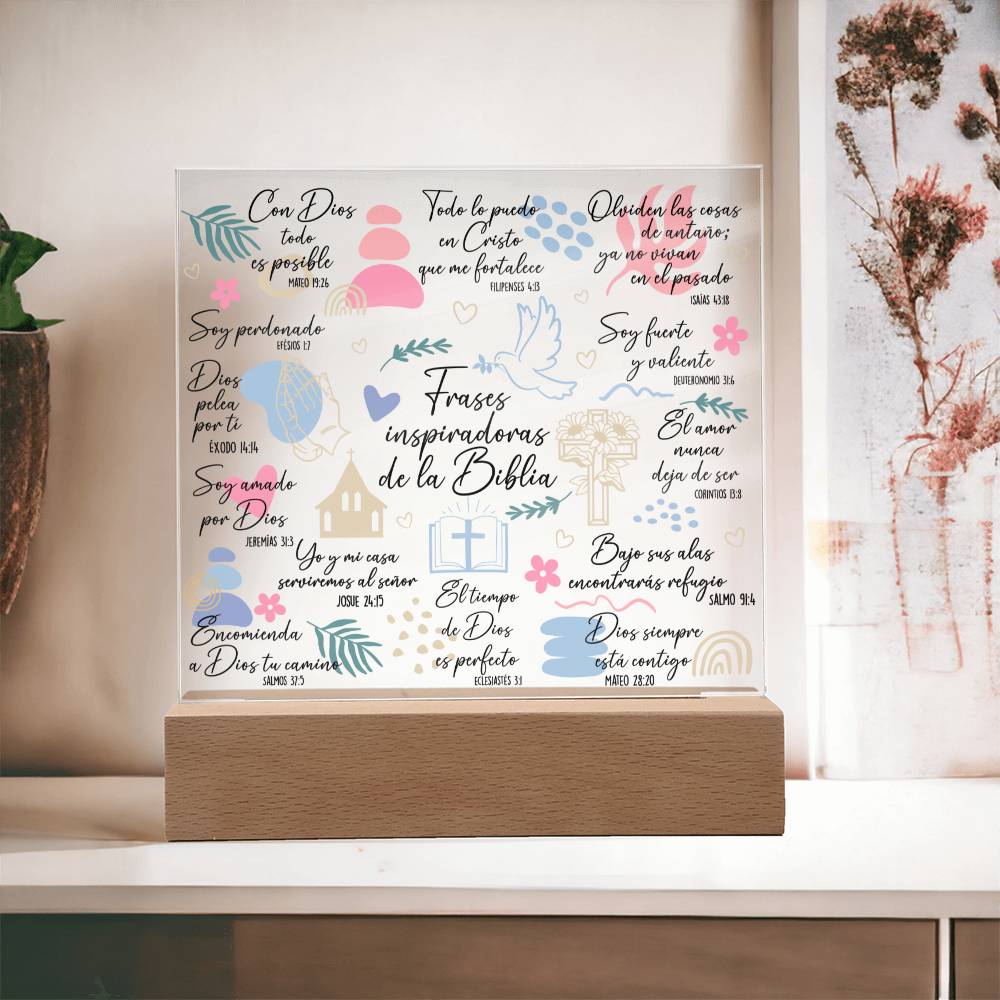 Con Dios
todo
es posible
MATEO 19:26
Todo lo puedo
en Cristo
que me fortalece
FILIPENSES 4:13
Olviden las cosas
de antaño;
ya no vivan
en el pasado
ISAÍAS 43:18
Soy perdonado
EFÉSIOS 1:7
Soy fuerte
y valiente
DEUTERONOMIO 31:6
Dios
pelea
por ti
ÉXODO 14:14
Frases
inspiradoras
de la Biblia
El amor
nunca
deja de ser
CORINTIOS 13:8
Soy amado
por Dios
JEREMÍAS 31:3
Yo y mi casa
serviremos al señor
JOSUE 24:15
Bajo sus alas
encontrarás refugio
SALMO 91:4
Encomienda
a Dios tu camino
SALMOS 37:5
El tiempo
de Dios
es perfecto
ECLESIASTÉS 3:1
Dios siempre
está contigo
MATEO 28:20